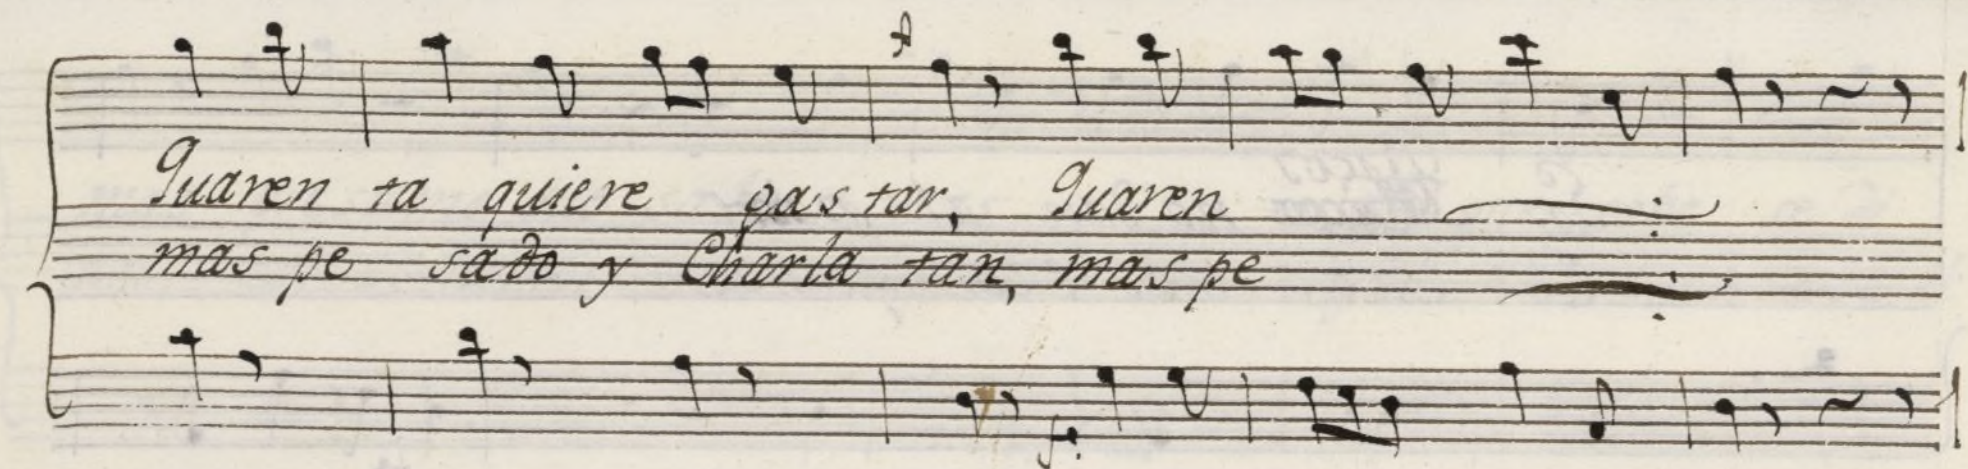 Quaren ta quiere gas tar, Quaren
mas pe sado y Charla tan, mas pe